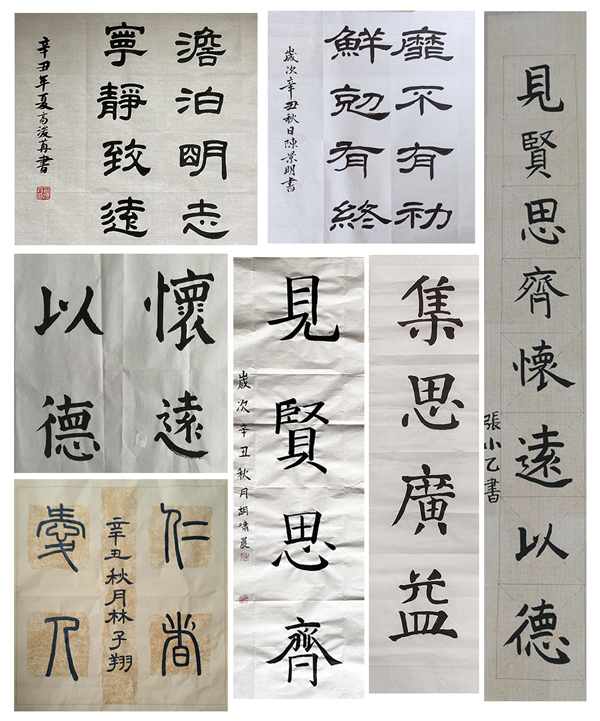 澹泊明志
寧靜致遠
辛丑年夏高再書
靡不有初
鮮剋有終
歲次辛丑秋日陳景明書
見賢思齊懷遠以德
張小乙書
懷遠
以德
見賢思齊
歲次辛丑秋月胡嘯晨
集思廣益
仁者
辛丑秋月林子翔
愛人